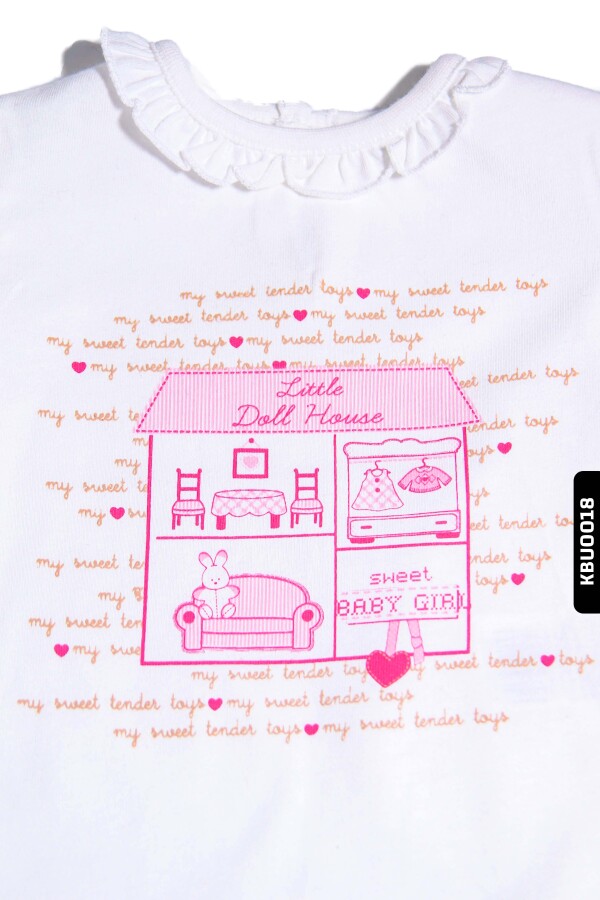 my sweet tender toys my sweet tender toys
my sweet tender toys my sweet tender toys
my sweet tender toys my sweet tender toys
my sweet tender toys my sweet tender toys
Little
Doll House
sweet tender toys
my sweet tender
tender toys
my
toys
my sweet
my
my sweet ten
my
sweet
toys
BABY GIRL
my sweet ten
my swe
my sweet tender toy my sweet tender toys
my sweet tender toys my sweet tender toys
my sweet tender toys my sweet tender toys
KBU0018